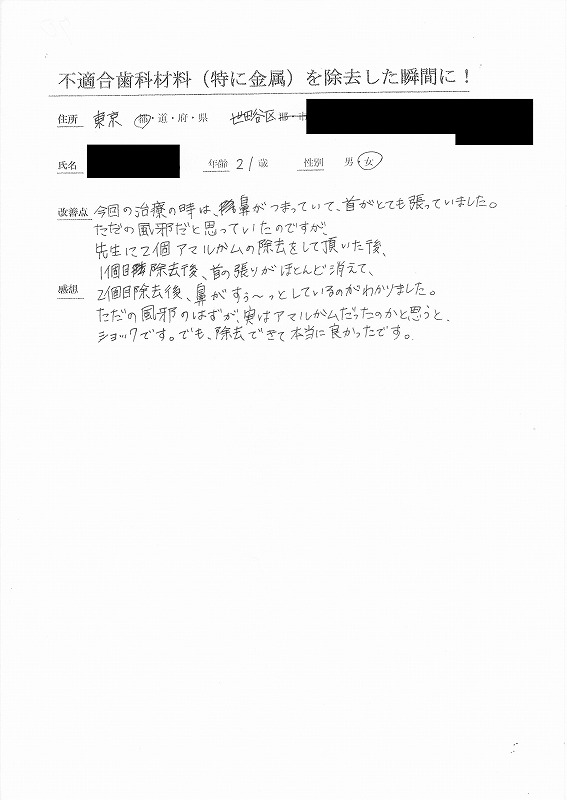 不適合歯科材料（特に金属）を除去した瞬間に！
住所 東京 都・道・府・県 世田谷区
氏名 年齢 21歳 性別 男・女
改善点 今回の治療の時は、鼻がつまっていて、首がとても張っていました。
ただの風邪だと思っていたのですが、
先生に2個アマルガムの除去をして頂いた後、
1個目除去後、首の張りがほとんど消えて、
感想 2個目除去後、鼻がすぅ〜っとしているのがわかりました。
ただの風邪のはずが、実はアマルガムだったのかと思うと、
ショックです。でも、除去できて本当に良かったです。